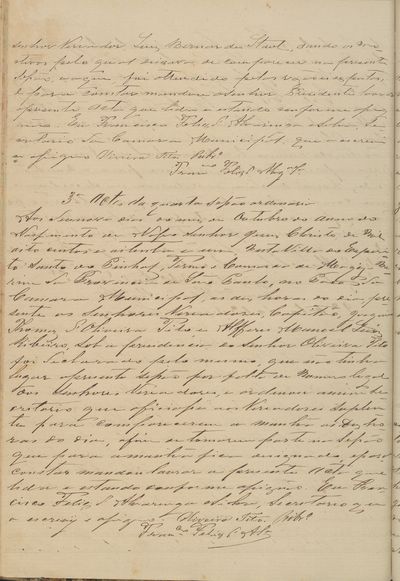 Senhor Vereador Luiz Bernardo Stael, dando os mo
tivos pelo qual deixava de comparecer na presente
Sessão, o que foi attendido pelos
e para constar mandou o Senhor Presidente lavrar
a presente Acta que lida e estando conforme
Eu Francisco Felis d' Alvarenga Silva, Se
cretario da Camara Municipal, que a escrevi
e assigno Oliveira Tito Ribrº
Franco Felis d' Alvª Sª
3ª Acta da quarta sessão ordinaria
Aos dias do mes de Outubro do Anno do
Nascimento de Nosso Senhor Jesus Christo de mil
oito centos e oitenta e um nesta Villa do Espiri
to Santo do Pinhal, Termo e Comarca de Mogy
mirim da Provincia de São Paulo, no Paço da
Camara Municipal, as dez horas do dia pre
sente os Senhores Vereadores, Capitão Joaquim
Thomaz d' Oliveira Tito e Alferes Manoel Luiz
Ribeiro, sob a presidencia do Senhor Oliveira Tito
foi declarado pelo mesmo, que não tinha
lugar a presente sessão por falta de numero legal
dos Senhores Vereadores, e ordenou a mim Se
cretario que officiasse aos Vereadores Supplen
tes para comparecerem a manhã as dez ho
ras do dia, afim de tomarem parte na Sessão
que para amanhã fica designada, e para
constar mandou lavrar a presente Acta que
lida e estando conforme assignão. Eu Fran
cisco Felis d' Alvarenga Silva, Secretario que
a escrevi e assigno. Oliveira Tito Ribrº
Franco Felis d' Alª